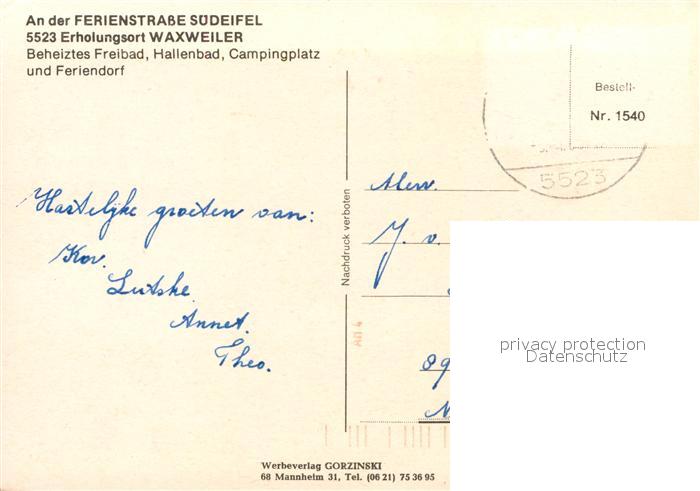 An der FERIENSTRAßE SÜDEIFEL
5523 Erholungsort WAXWEILER
Beheiztes Freibad, Hallenbad, Campingplatz
und Feriendorf
Bestell-
Nr. 1540
5523
Hartelijke groeten van:
Kov.
Lutske.
Annet.
Theo.
Nachdruck verboten
Mevr.
J. v.
An 4
privacy protection
Datenschutz
Werbeverlag GORZINSKI
68 Mannheim 31, Tel. (06 21) 75 36 95